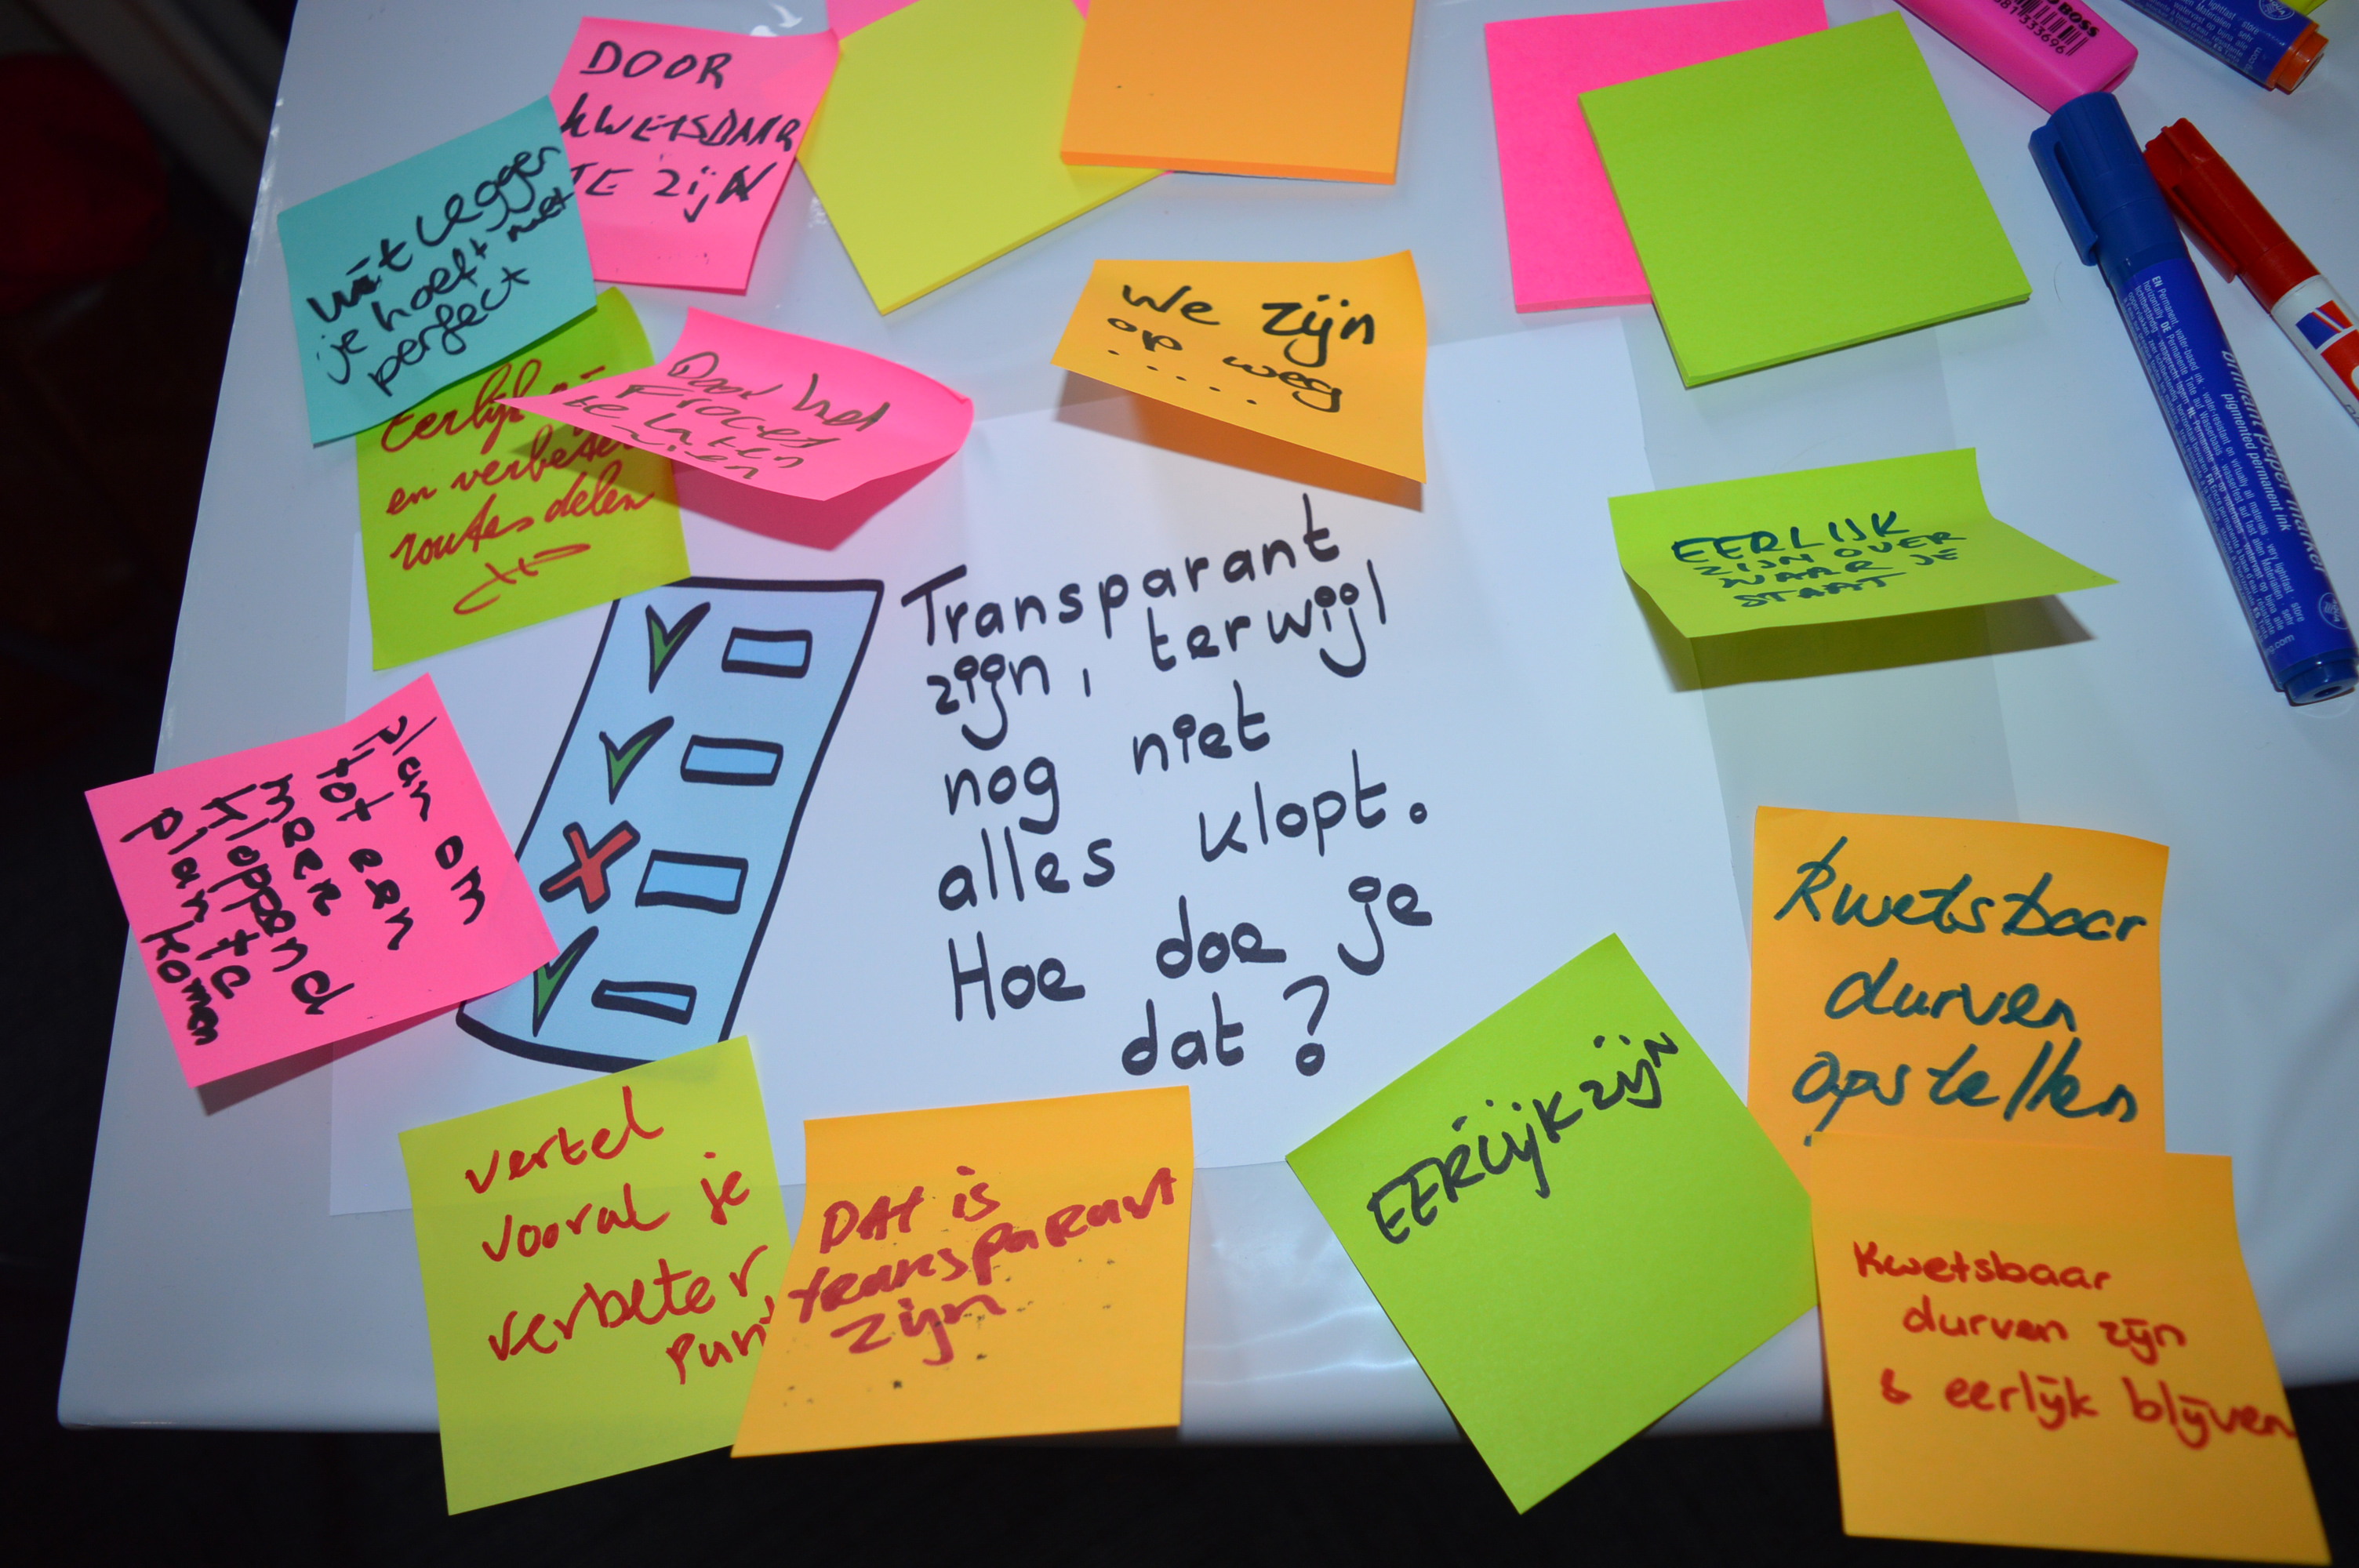 DOOR
KWETSBAAR
TE ZIJN
uitleggen
je hoeft niet
perfect
Eerlijk
en verbeter
routes delen
Door het
Proces
te laten
zien
We zijn
op weg
....
EERLIJK
ZIJN OVER
WAAR JE
STAAT
Transparant
zijn, terwijl
nog niet
alles klopt.
Hoe doe je
dat?
plan om
tot een
meer
kloppend
plan te
komen
Kwetsbaar
durven
opstellen
EERLIJK zijn
vertel
vooral je
verbeter
punt
DAT is
transparant
zijn
Kwetsbaar
durven zijn
& eerlijk blijven
BOSS
brilliant paper marker
pigmented permanent ink